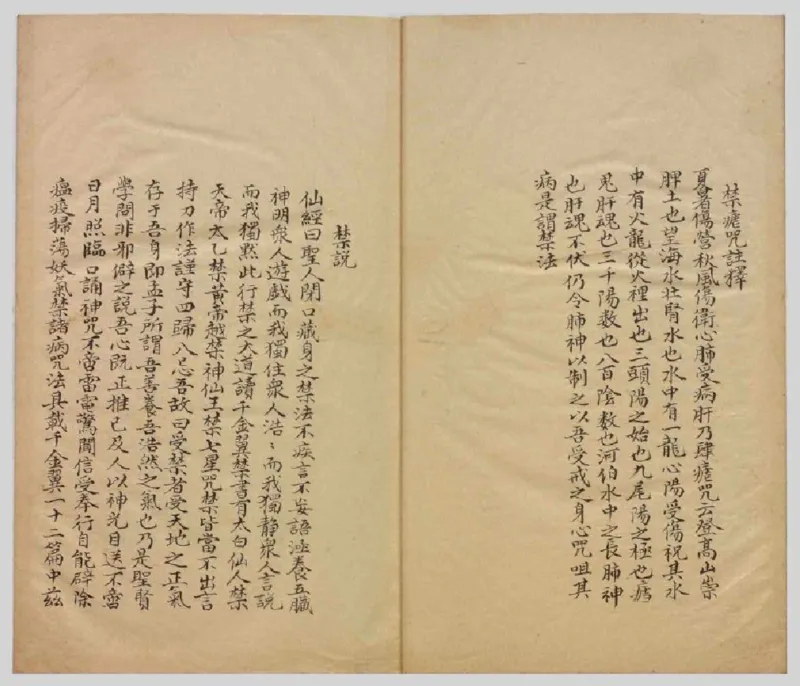 禁瘧咒註釋
夏暑傷營秋風傷衛心肺受病肝乃肆瘧咒云登高山崇
脾土也望海水壮腎水也水中有一龍心陽受傷祝其水
中有火龍從火裡出也三頭陽之始也九尾陽之極也瘧
鬼肝魂也三千陽数也八百陰数也河伯水中之長肺神
也肝魂不伏仍令肺神以制之以吾受戒之身心咒咀其
病是謂禁法
禁説
仙經曰聖人閉口藏身之禁法不疾言不妄語涵養五臟
神明衆人遊戯而我獨住衆人浩〻而我獨静衆人言説
而我獨黙此行禁之大道讀千金翼禁書有太白仙人禁
天帝太乙禁黄帝越禁神仙王禁七星咒禁皆當不出言
持刀作法謹守四歸八忌吾故曰受禁者受天地之正氣
存于吾身即孟子所謂吾善養吾浩然之氣也乃是聖賢
學問非邪僻之説吾心既正推己及人以神光目送不啻
日月照臨口誦神咒不啻雷電驚聞信受奉行自能辟除
瘟疫掃蕩妖氣禁諸病咒法具載千金翼一十二篇中茲